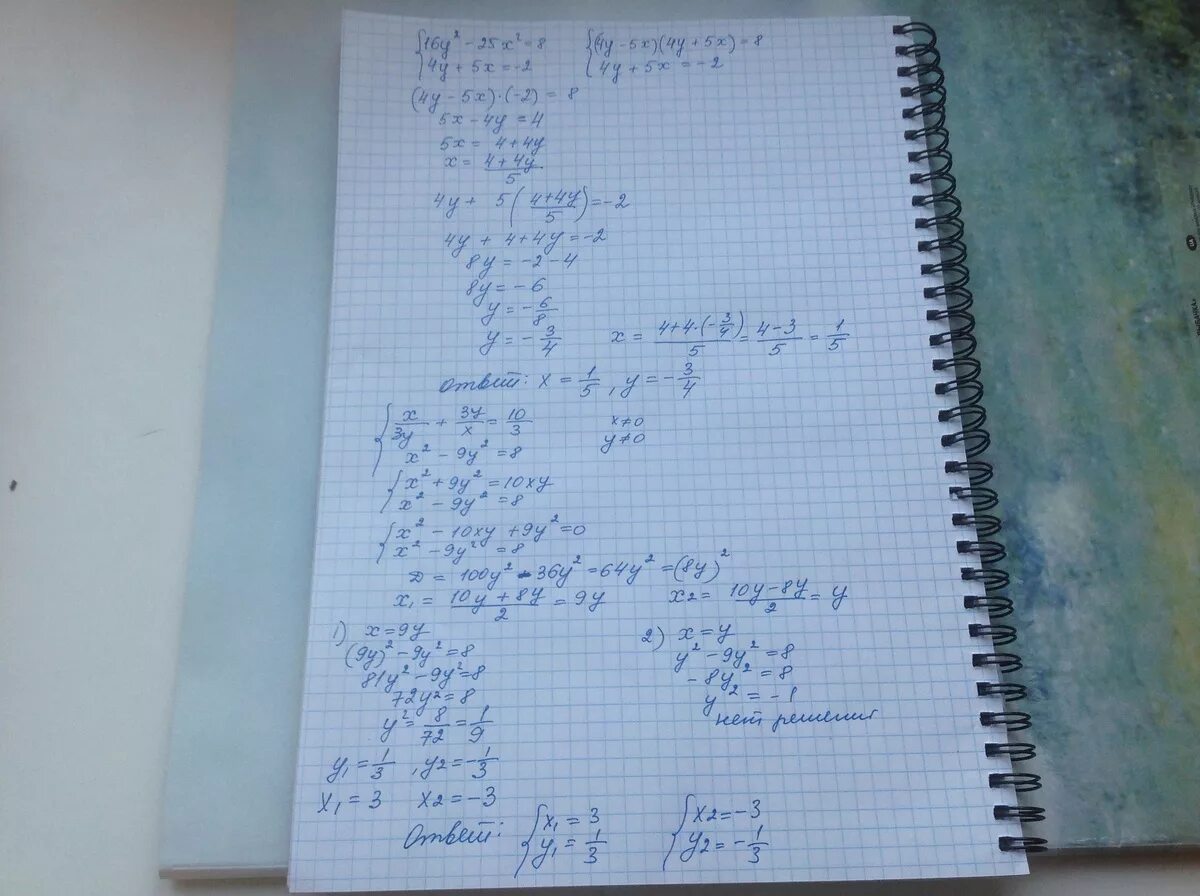 {16y² - 25x² = 8 {(4y - 5x)(4y + 5x) = 8
{4y + 5x = -2 {4y + 5x = -2
(4y - 5x)·(-2) = 8
5x - 4y = 4
5x = 4 + 4y
x = (4 + 4y)/5
4y + 5((4+4y)/5) = -2
4y + 4 + 4y = -2
8y = -2 - 4
8y = -6
y = -6/8
y = -3/4 x = (4+4·(-3/4))/5 = (4-3)/5 = 1/5
ответ: x = 1/5, y = -3/4
{x/3y + 3y/x = 10/3 x≠0
{x² - 9y² = 8 y≠0
{x² + 9y² = 10xy
{x² - 9y² = 8
{x² - 10xy + 9y² = 0
{x² - 9y² = 8
D = 100y² - 36y² = 64y² = (8y)²
x₁ = (10y + 8y)/2 = 9y x₂ = (10y - 8y)/2 = y
1) x = 9y
(9y)² - 9y² = 8
81y² - 9y² = 8
72y² = 8
y² = 8/72 = 1/9
y₁ = 1/3, y₂ = -1/3
x₁ = 3 x₂ = -3
2) x = y
y² - 9y² = 8
-8y² = 8
y² = -1
нет решения
Ответ: {x₁ = 3 {x₂ = -3
{y₁ = 1/3 {y₂ = -1/3